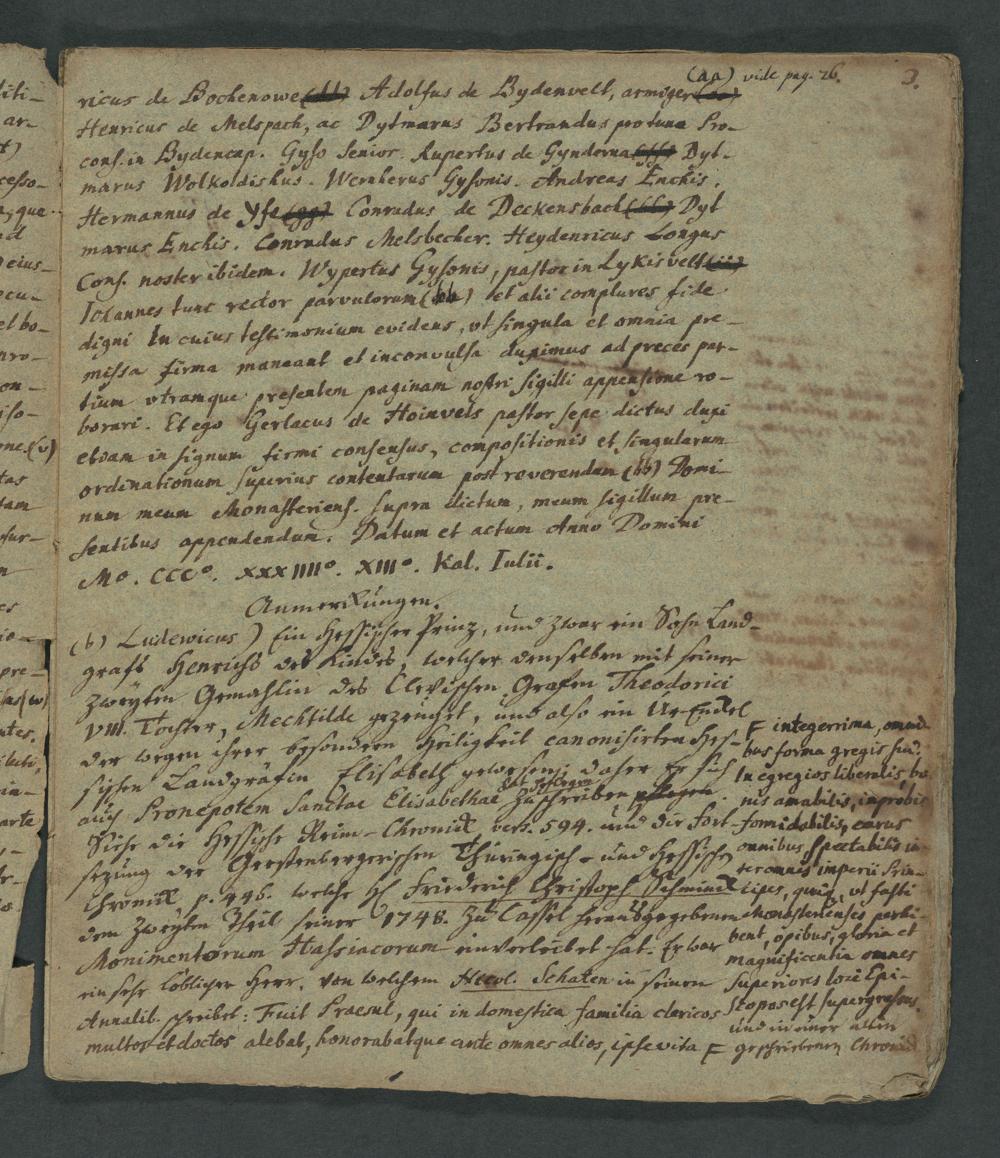 (aa) vide pag. 26. 3.
ricus de Bochenowe (dd) Adolfus de Bydenvelt, armiger
Henricus de Melspach, ac Dytmarus Bertrandus pro tunc Pro-
cons. in Bydencap. Gyso Senior. Rupertus de Gynderna Dyt-
marus Wolkoldishus. Wernherus Gysonis. Andreas Enchis.
Hermannus de Yfe (gg) Conradus de Deckensbach (hh) Dyt
marus Enchis. Conradus Melsbecher. Heydenricus Longus
Cons. noster ibidem. Wypertus Gysonis, pastor in Lykisvelt (ii)
Iohannes tunc rector parvulorum et alii complures fide
digni In cuius testimonium evidens, ut singula et omnia pre-
missa firma maneant et inconvulsa duximus ad preces par-
tium utramque presentem paginam nostri sigilli appensione ro-
borari. Et ego Gerlacus de Hoinvels pastor sepe dictus duxi
etiam in signum firmi consensus, compositionis et singularum
ordinationum superius contentarum post reverendum (bb) Domi-
num meum Monasteriens. supra dictum, meum sigillum pre-
sentibus appendendum. Datum et actum Anno Domini
Mo. CCCo. XXXIIIIo. XIIIo. Kal. Iulii.
Anmerkungen.
(b) Ludewicus) Ein Hessischer Prinz, und zwar ein Sohn Land-
grafs Henrichs des Kindes, welcher denselben mit seiner
zweyten Gemahlin des Clevischen Grafen Theodorici
VIII. Tochter, Mechtilde gezeuget, und also ein Ur-Enckel
der wegen ihrer besondern Heiligkeit canonisirten Hes-
sischen Landgräfin Elisabeth gewesen; daher Er sich
auch Pronepotem Sanctae Elisabethae zuschreiben pflegen
hat pflegen
Siehe die Hessische Reim-Chronick, vers. 594. und die Fort-
sezung der Gerstenbergerischen Thüringisch- und Hessischen
Chronick p. 446. welche H Friederich Christoph Schmincke
dem zweyten Theil seiner 1748. zu Cassel herausgegebenen
Monimentorum Hassiacorum einverleibet hat. Er war
ein sehr löblicher Herr, von welchem Nicol. Schaten in seinen
Annalib. schreibet: Fuit Praesul, qui in domestica familia clericos
multos et doctos alebat, honorabatque ante omnes alios, ipse vita F
F integerrima, omni-
bus forma gregis sui.
In egregios liberalis, bo-
nis amabilis, improbis
formidabilis, carus
omnibus, spectabilis in-
ter omnes imperii Prin-
cipes, quin, ut fasti
Monasterienses perhi-
bent, opibus, gloria et
magnificentia omnes
superiores loci Epi-
scopos est supergressus.
und in einer alten
geschriebenen Chronick